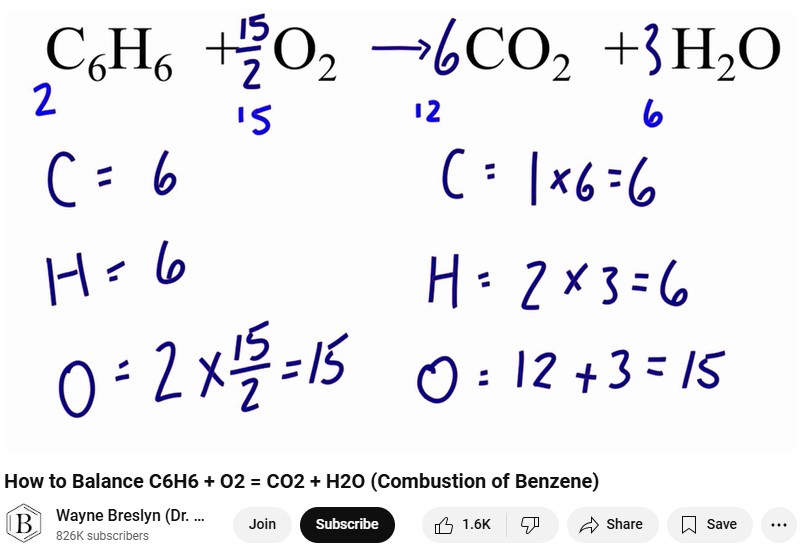 C₆H₆ + 15/2 O₂ → 6CO₂ + 3H₂O
2 15 12 6
C = 6 C = 1×6=6
H = 6 H = 2×3=6
O = 2×15/2=15 O = 12+3=15
How to Balance C6H6 + O2 = CO2 + H2O (Combustion of Benzene)
B
Wayne Breslyn (Dr. ...
826K subscribers
Join Subscribe 1.6K Share Save ...